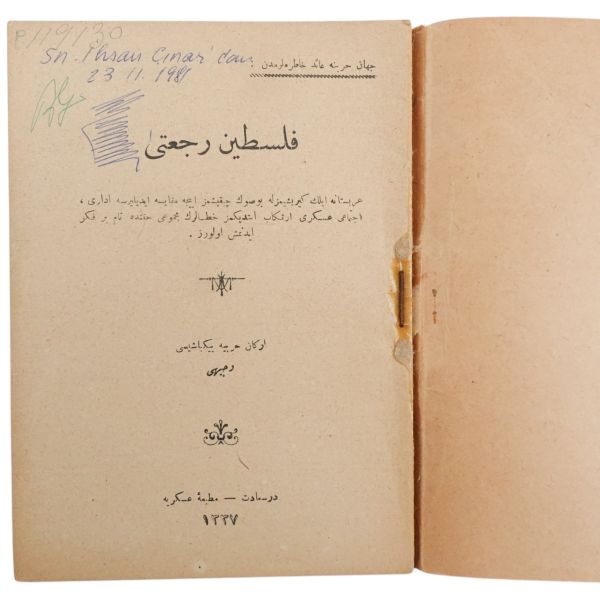 P119130
Sn. İhsan Çınar'dan
23 11. 1981
جهان حربنه عائد خاطره‌لرمدن :
فلسطین رجعتی
عربستانه ایلك کیریشیمزله بوصوك چیقیشمز اییجه مقایسه ایدیلیرسه اداری ،
اجتماعی عسکری ارتکاب ایتدیکمز خطالرك مجموعی حقنده تام بر فکر
ایدنمش اولورز .
ارکان حربیه بیکباشیسی
وجیهی
درسعادت — مطبعهٔ عسکریه
١٣٣٧